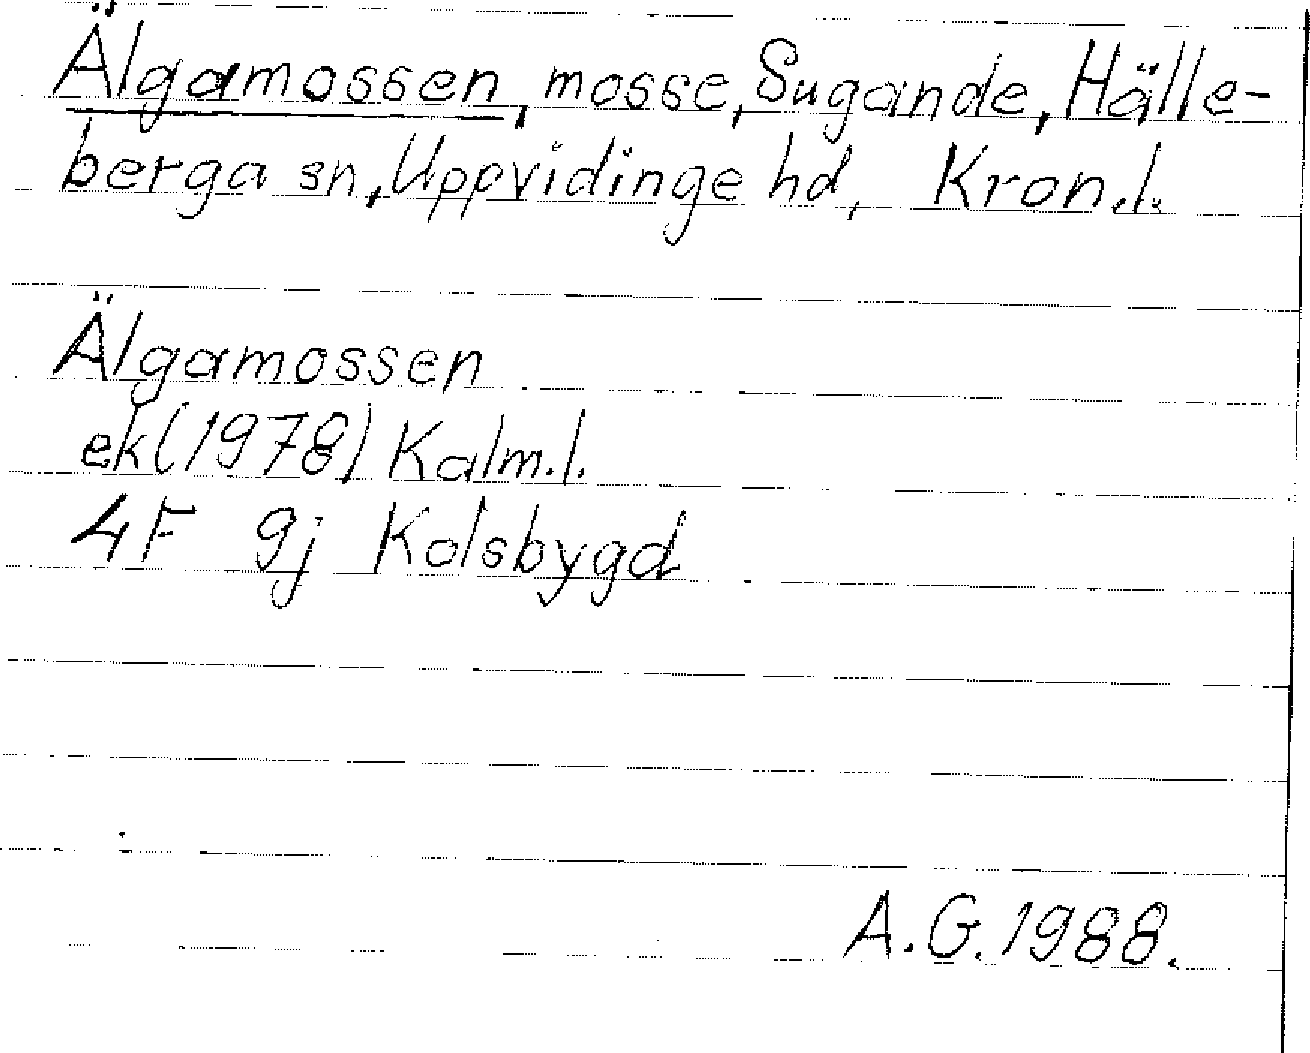 Älgamossen, mosse, Sugande, Hälle-
berga sn, Uppvidinge hd, Kron.l.
Älgamossen
ek (1978) Kalm.l.
4F 9j Kolsbygd
A.G. 1988.